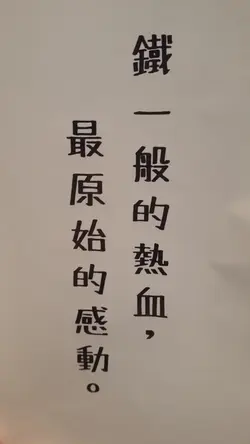 鐵一般的熱血，
最原始的感動。